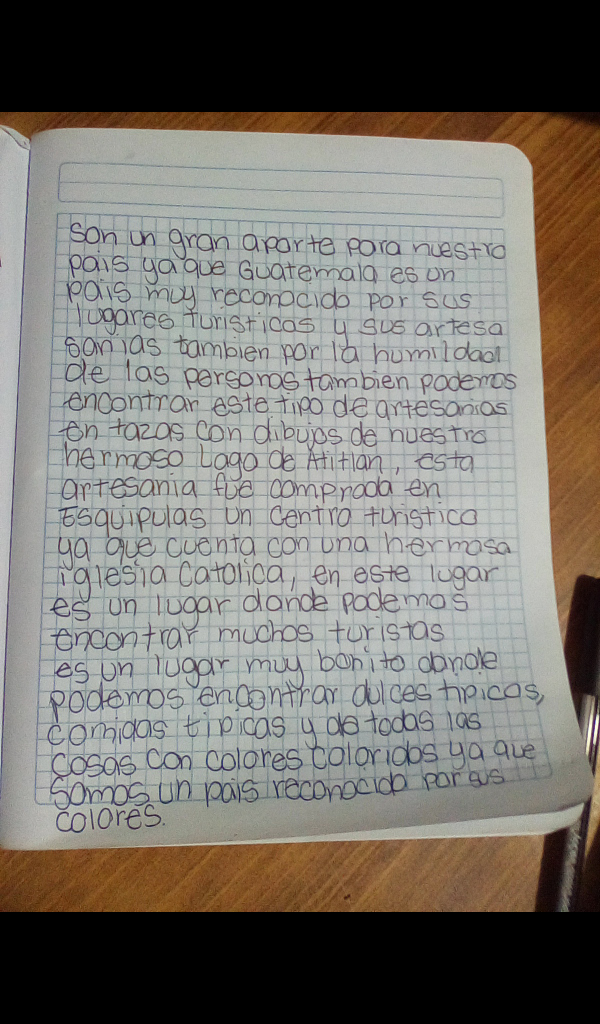 son un gran aporte para nuestro
pais ya que Guatemala es un
pais muy reconocido por sus
lugares turisticos y sus artesa
sanias tambien por la humildad
de las personas tambien podemos
encontrar este tipo de artesanias
en tazas con dibujos de nuestro
hermoso Lago de Atitlan, esta
artesania fue comprada en
Esquipulas un Centro turistico
ya que cuenta con una hermosa
iglesia Catolica, en este lugar
es un lugar donde podemos
encontrar muchos turistas
es un lugar muy bonito donde
podemos encontrar dulces tipicos,
comidas tipicas y de todas las
cosas con colores coloridos ya que
Somos un pais reconocido por sus
colores.